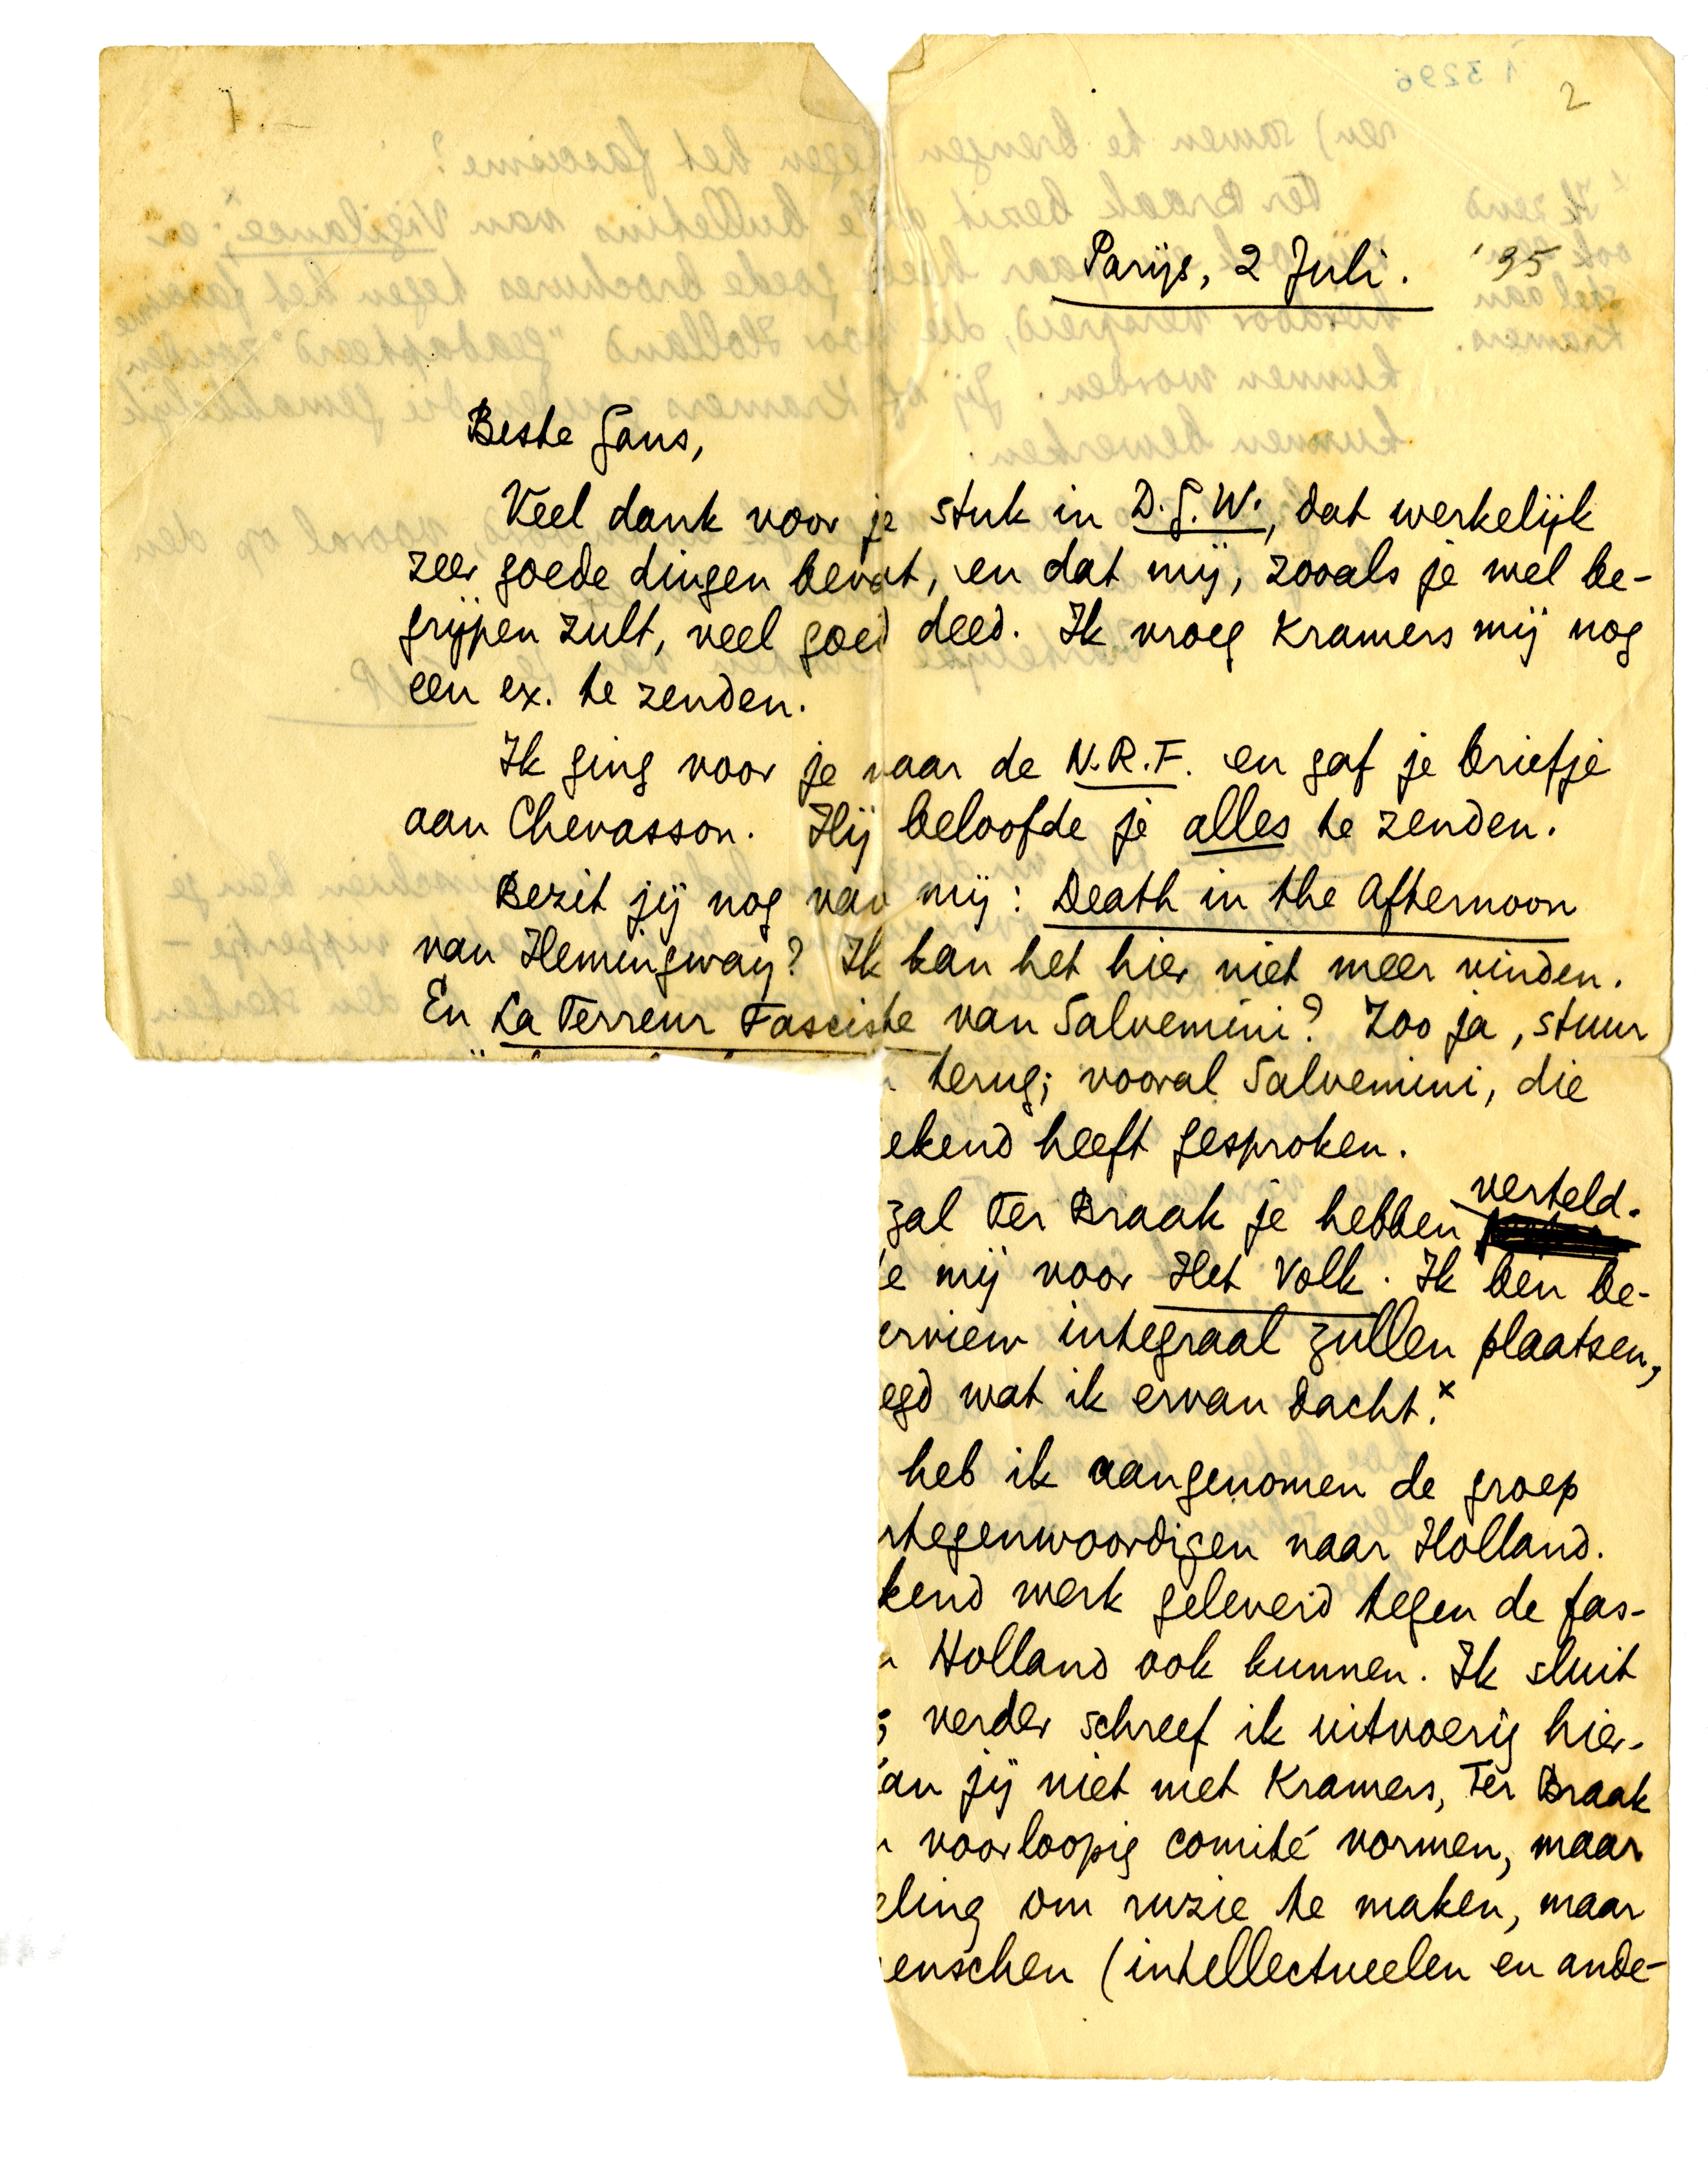 1
2
Parijs, 2 Juli. '35
Beste Gans,
Veel dank voor je stuk in D.G.W., dat werkelijk
zeer goede dingen bevat, en dat mij, zooals je wel be-
grijpen zult, veel goed deed. Ik vroeg Kramers mij nog
een ex. te zenden.
Ik ging voor je naar de N.R.F. en gaf je briefje
aan Chevasson. Hij beloofde je alles te zenden.
Bezit jij nog van mij: Death in the Afternoon
van Hemingway? Ik kan het hier niet meer vinden.
En La Terreur Fasciste van Salvemini? Zoo ja, stuur
terug; vooral Salvemini, die
ekend heeft gesproken.
zal Ter Braak je hebben verteld.
e mij voor Het Volk. Ik ben be-
erview integraal zullen plaatsen,
egd wat ik ervan dacht.x
heb ik aangenomen de groep
rtegenwoordigen naar Holland.
kend werk geleverd tegen de fas-
Holland ook kunnen. Ik sluit
verder schreef ik uitvoerig hier-
an jij niet met Kramers, Ter Braak
voorloopig comité vormen, maar
eling om ruzie te maken, maar
enschen (intellectueelen en ande-